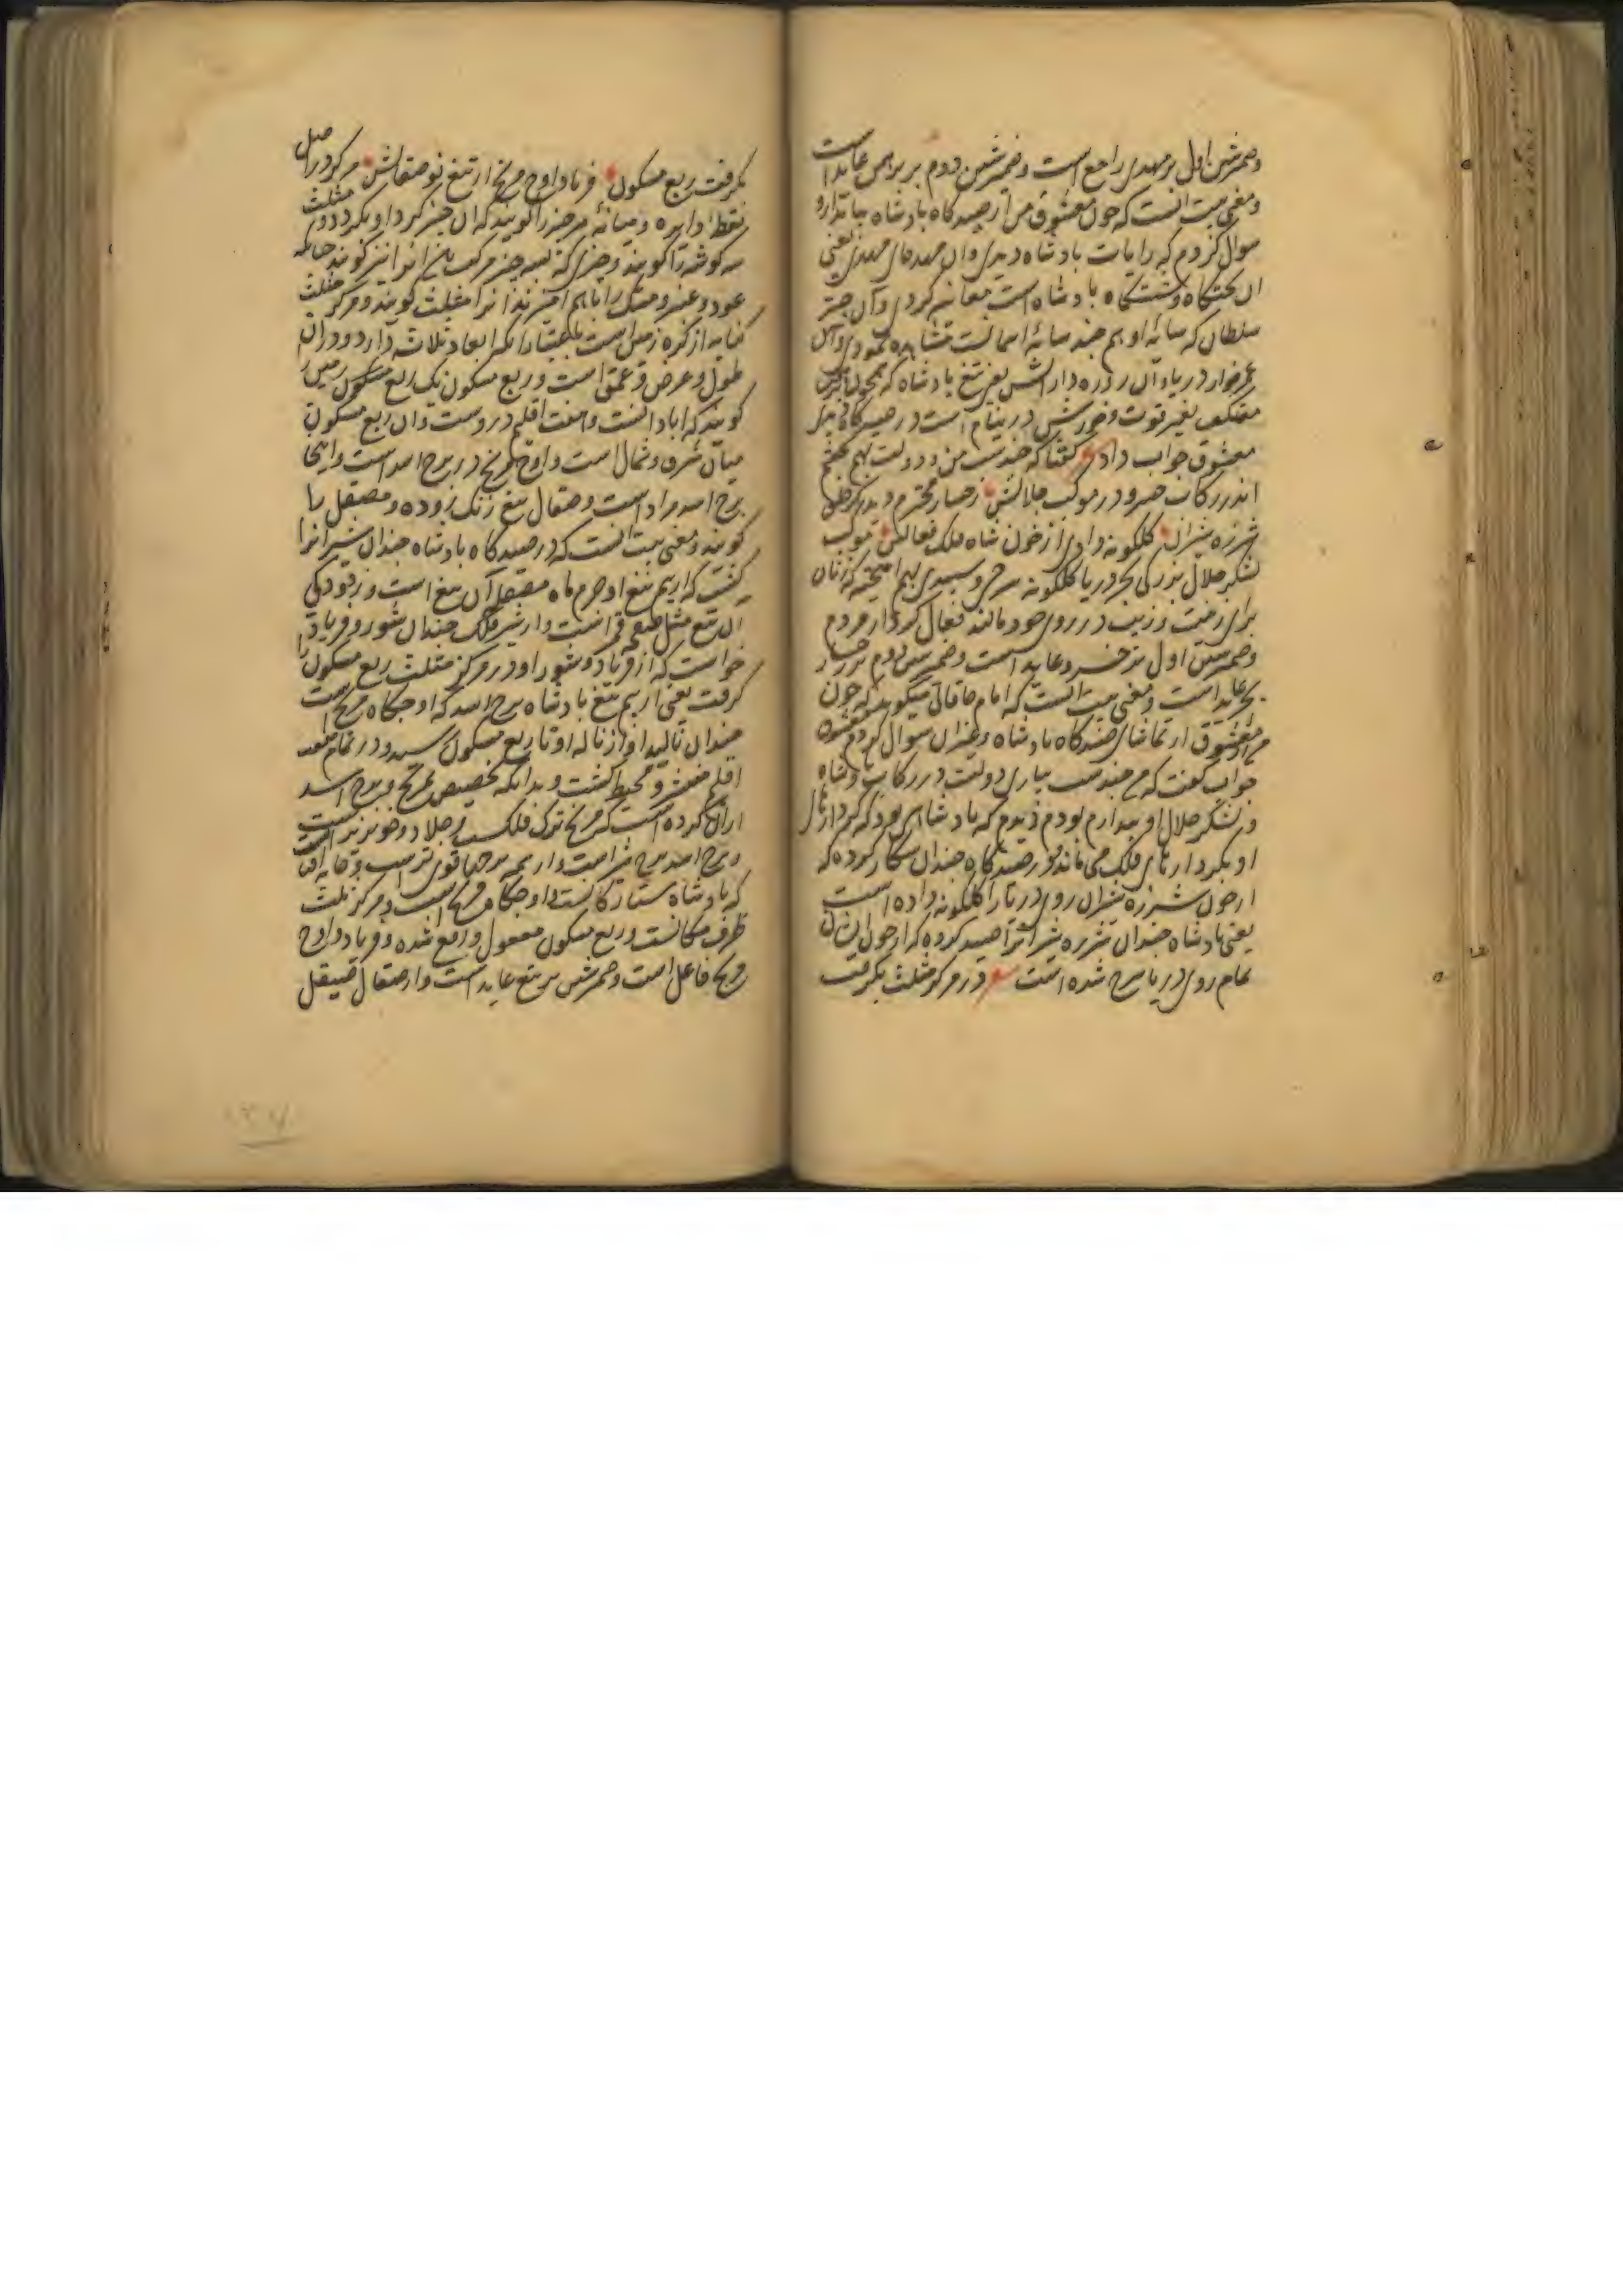 وضمیر شین اول بر مهدی راجع است وضمیر شین دوم بر براهمی عاید است
ومعنی بیت انست که چون معشوق من از صیدکاه بادشاه بیاتدارو
سوال کردم که رایات بادشاه دیدی وان مهدی یعنی
ان تختکاه ونشستکاه بادشاه است معاینه کردی وآن چتر
سلطان که سایهٔ او هم چند سایهٔ اسمانست مشاهده نمودی وآن
عمرخوار دریا وآن روزه دار اتش یعنی تیغ بادشاه که همچون
معتکف بغیر قوت وخورش در نیام است در صیدکاه
معشوق جواب داد ع کفتا که جنیبت من ودولت بهم
اندر رکاب خسرو در موکب جلالش رخسار بحر دیدم کز حلق
شرزه شیران کلکونه دادی از خون شاه فلک فعالش موکب
لشکر جلال بزرکی بحر دریا کلکونه سرخی وسپیدی بهم امیخته که زنان
برای زینت وزیب در روی خود مالند فعال کردار مردم
وضمیر شین اول بر خسرو عاید است وضمیر شین دوم بر رخسار
بحر عاید است ومعنی بیت انست که امام خاقانی میکوید که چون
من از معشوق از تماشای صیدکاه بادشاه وغیران سوال کردم معشوق
جواب کفت که من جنیبت بیاری دولت در رکاب بادشاه
ولشکر جلال او بودم دیدم که بادشاهی بود که کردارهای
او بکردارهای فلک می ماند در صیدکاه چندان شکار کرده که
از خون شرزه شیران روی دریا را کلکونه داده است
یعنی بادشاه چندان شرزه شیران را صید کرده که از خون ایشان
تمام روی دریا سرخ شده است شعر در مرکز مثلث بکرفت
بکرفت ربع مسکون فریاد اوج مریخ از تیغ نو صقالش مرکز در اصل
نقطهٔ دایره ومیانهٔ هر چیز را کویند که ان چیز کرد او بکردد ومثلث
سه کوشه را کویند وچیزی که بسه چیز مرکب انرا نیز کویند چنانکه
عود وعنبر ومشک را باهم امیزند انرا مثلث کویند ومرکز مثلث
کنایه از کره زمین است باعتبار انکه ابعاد ثلاثه دارد ودران
طول وعرض وعمق است وربع مسکون یک ربع مسکون زمین
کویند که ابادانست وهفت اقلیم دروست وان ربع مسکون
میان شرق وشمال است واوج مریخ در برج اسد است واینجا
برج اسد مراد است وصقال تیغ زنک زدوده ومصقل را
کویند ومعنی بیت انست که در صیدکاه بادشاه چندان شیرانرا
کشت که از بیم تیغ او جرم ماه مصقل آن تیغ است ودر زدودکی
ان تیغ مثل صفحه قمر است واز شیر فلک چندان شور وفریاد
خواست که از فریاد وشور او در مرکز مثلث ربع مسکون
کرفت یعنی از بیم تیغ بادشاه برج اسد که اوجکاه مریخ است
چندان نالید اواز ناله او تا ربع مسکون رسید ودر تمام هفت
اقلیم منتشر ومحیط کشت وبدانکه تخصیص مریخ وبرج اسد
ازان کرده است که مریخ ترک فلک وجلاد وخونریز است
وبرج اسد برج شیر است واز همه برجها قوی تر است وخانه افتاب
که بادشاه ستارکانست واوجکاه مریخ است ومرکز مثلث
ظرف مکانست وربع مسکون مفعول واقع شده وفریاد واوج
مریخ فاعل است وضمیر شین بر تیغ عاید است واز صقال صیقل